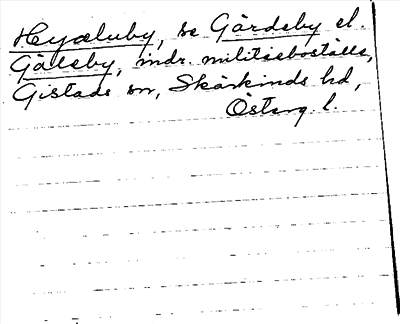 Heyæluby, se Gärdeby el.
Gälleby, indr. militieboställe,
Gistads sn, Skärkinds hd,
Österg. l.